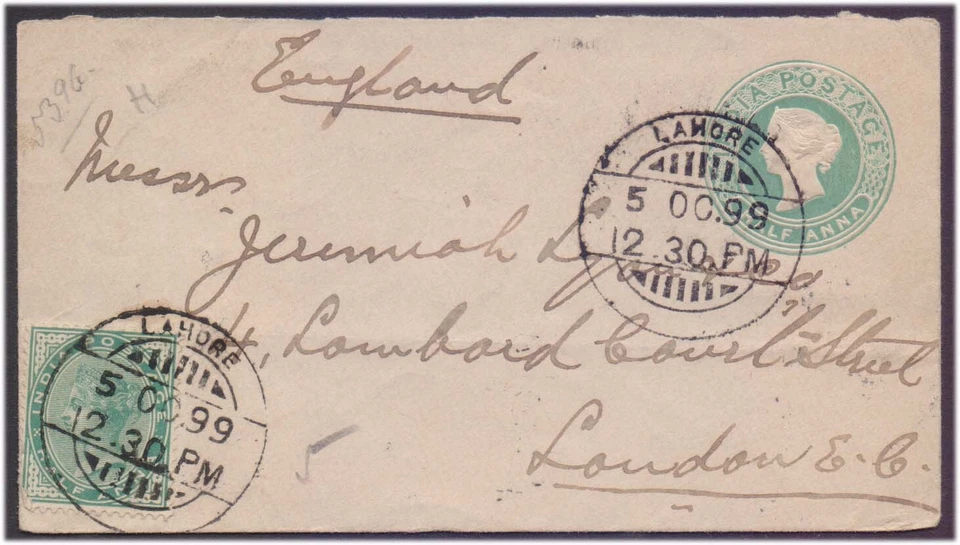 England
Messrs
Jeremiah Lyon & Co,
4, Lombard Court Street
London E.C.
INDIA POSTAGE
HALF ANNA
LAHORE
5 OC.99
12.30.PM
LAHORE
5 OC.99
12.30.PM
HALF